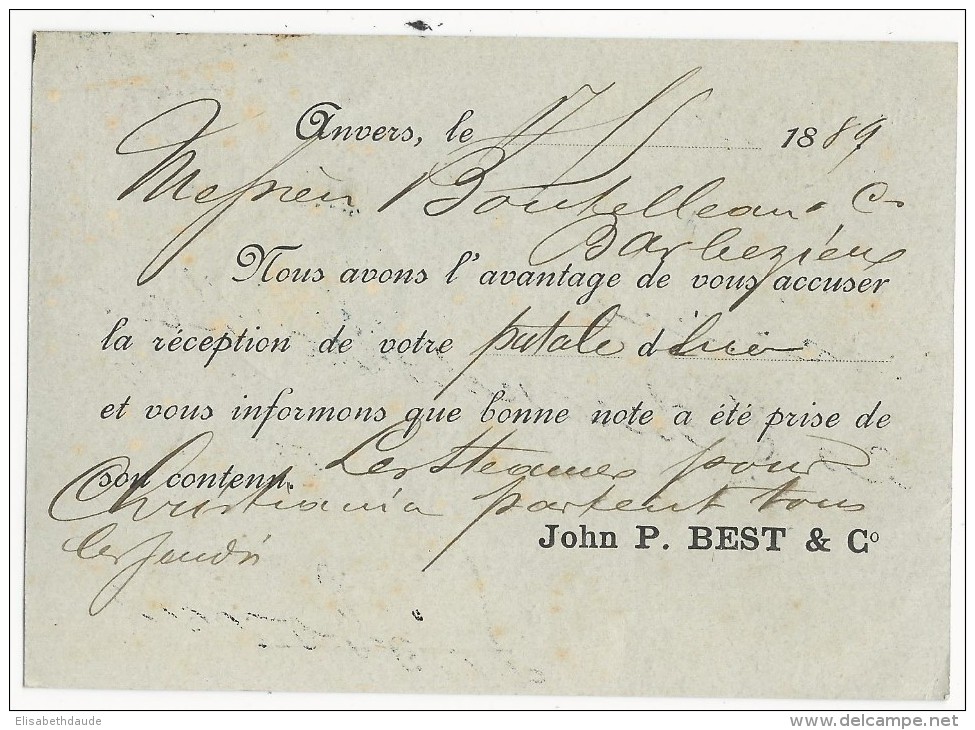 Anvers, le 17/5 1889
Messieurs Boutelleau & Co
Barbezieux
Nous avons l'avantage de vous accuser
la réception de votre postale d'hier
et vous informons que bonne note a été prise de
son contenu. Les Steamers pour
Christiania partent tous
les Jeudis
John P. BEST & Co
Elisabethdaude
www.delcampe.net